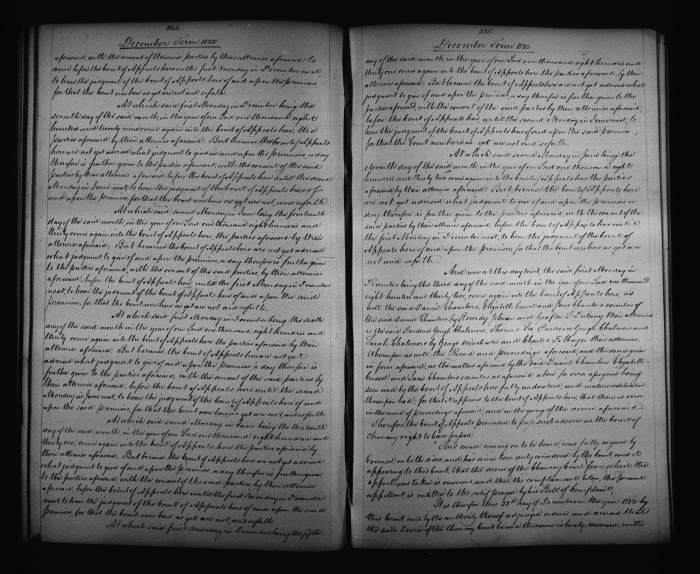 December Term 1832
aforesaid, with the consent of the said parties by their attornies aforesaid, to
before the Court of Appeals here on the first Monday in December next
to hear the judgment of the Court of Appeals here of and upon the premises
for that the Court now here as yet are not and so forth.
At which said first Monday in December being the
seventh day of the said month, in the year of our Lord one thousand eight
hundred and twenty nine come again into the Court of Appeals here, the
parties aforesaid by their attornies aforesaid. But because the Court of Appeals
here are not yet advised what judgment to give of and upon the premises a day
therefore is further given to the parties aforesaid, with the consent of the said
parties by their attornies aforesaid before the Court of Appeals here until the second
Monday in June next, to hear the judgment of the Court of Appeals here of
and upon the premises, for that the Court now here as yet are not, and so forth.
At which said second Monday in June being the fourteenth
day of the said month, in the year of our Lord one thousand eight hundred and
thirty come again into the Court of Appeals here, the parties aforesaid by their
attornies aforesaid. But because the Court of Appeals here are not yet advised
what judgment to give of and upon the premises, a day therefore is further given
to the parties aforesaid, with the consent of the said parties by their attornies
aforesaid, before the Court of Appeals here until the first Monday in December
next, to hear the judgment of the Court of Appeals here of and upon the said
premises, for that the Court now here as yet are not and so forth.
At which said first Monday in December being the sixth
day of the said month in the year of our Lord one thousand eight hundred and
thirty come again into the Court of Appeals here, the parties aforesaid by their
attornies aforesaid. But because the Court of Appeals here are not yet
advised what judgment to give of and upon the premises a day therefore is
further given to the parties aforesaid, with the consent of the said parties by
their attornies aforesaid, before the Court of Appeals here until the second
Monday in June next, to hear the judgment of the Court of Appeals here of and
upon the said premises for that the Court now here as yet are not, and so forth.
At which said second Monday in June being the thirteenth
day of the said month, in the year of our Lord one thousand eight hundred and
thirty one, come again into the Court of Appeals here the parties aforesaid by
their attornies aforesaid. But because the Court of Appeals here are not yet advised
what judgment to give of and upon the premises, a day therefore is further given
to the parties aforesaid, with the consent of the said parties by their attornies
aforesaid, before the Court of Appeals here until the first Monday in December
next to hear the judgment of the Court of Appeals here of and upon the said
premises, for that the Court now here as yet are not, and so forth.
At which said first Monday in December being the fifth
December Term 1832
day of the said month in the year of our Lord one thousand eight hundred and
thirty one come again into the Court of Appeals here the parties aforesaid, by their
attornies aforesaid. But because the Court of Appeals here are not yet advised what
judgment to give of and upon the premises a day therefore is further given to the
parties aforesaid, with the consent of the said parties by their attornies aforesaid,
before the Court of Appeals here until the second Monday in June next, to
hear the judgment of the Court of Appeals here of and upon the said premises,
for that the Court now here as yet are not and so forth.
At which said second Monday in June being the
eleventh day of the said month in the year of our Lord one thousand eight
hundred and thirty two come again into the Court of Appeals here the parties
aforesaid by their attornies aforesaid. But because the Court of Appeals here
are not yet advised what judgment to give of and upon the premises a
day therefore is further given to the parties aforesaid, with the consent of the
said parties by their attornies aforesaid, before the Court of Appeals here until
the first Monday in December next, to hear the judgment of the Court of
Appeals here of and upon the premises, for that the Court now here as yet are
not and so forth.
And now at this day to wit, the said first Monday in
December being the third day of the said month in the year of our Lord one thousand
eight hundred and thirty two, come again into the Court of Appeals here, as
well the said Daniel Chambers, Elizabeth and Jane Chambers
the said Daniel Chambers by and their attornies
as the said Gough Chalmers, Thomas and
Sarah Chalmers by George Winchester and Charles F. Mayer their attornies,
Whereupon as well the Record and proceedings aforesaid, and the decree given
in form aforesaid, as the matters aforesaid by the said Daniel Chambers Elizabeth
and Jane Chambers aforesaid above for error assigned being
seen and by the Court of Appeals here fully understood, and mature deliberation
thereupon had, for that it appears to the Court of Appeals here, that there is error
in the record & proceedings aforesaid, and in the giving of the decree aforesaid.
Therefore the Court of Appeals proceeded to pass such decree as the Court of
Chancery ought to have passed.
This cause coming on to be heard was fully argued by
Counsel on the sides, and has since been duly considered by the Court and it
appearing to this Court, that the decree of the Chancery Court from which the
appeal was taken is erroneous and that the complainant below, the present
appellant is entitled to the relief prayed by his Bill of Complaint;
It is therefore this 22d day of December in the year 1832 by
this Court and by the authority thereof adjudged ordered and decreed that
the said Decree of the Chancery Court be and the same is hereby reversed, with